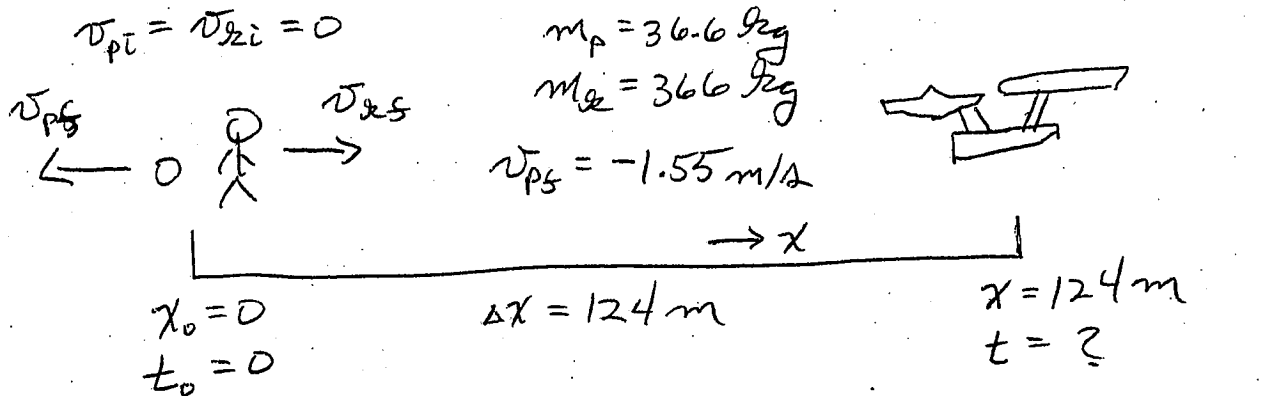 v_pi = v_ki = 0
m_p = 36.6 kg
m_k = 366 kg
v_pf
v_kf
v_pf = -1.55 m/s
→ x
x₀ = 0
Δx = 124 m
x = 124 m
t₀ = 0
t = ?